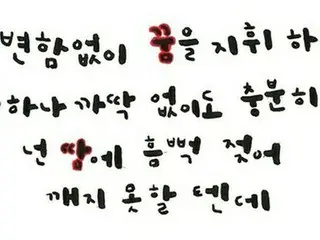 변함없이 꿈을 지휘 하
하나 까딱 없이도 충분히
넌 땀에 흠뻑 젖어
깨지 못할 텐데